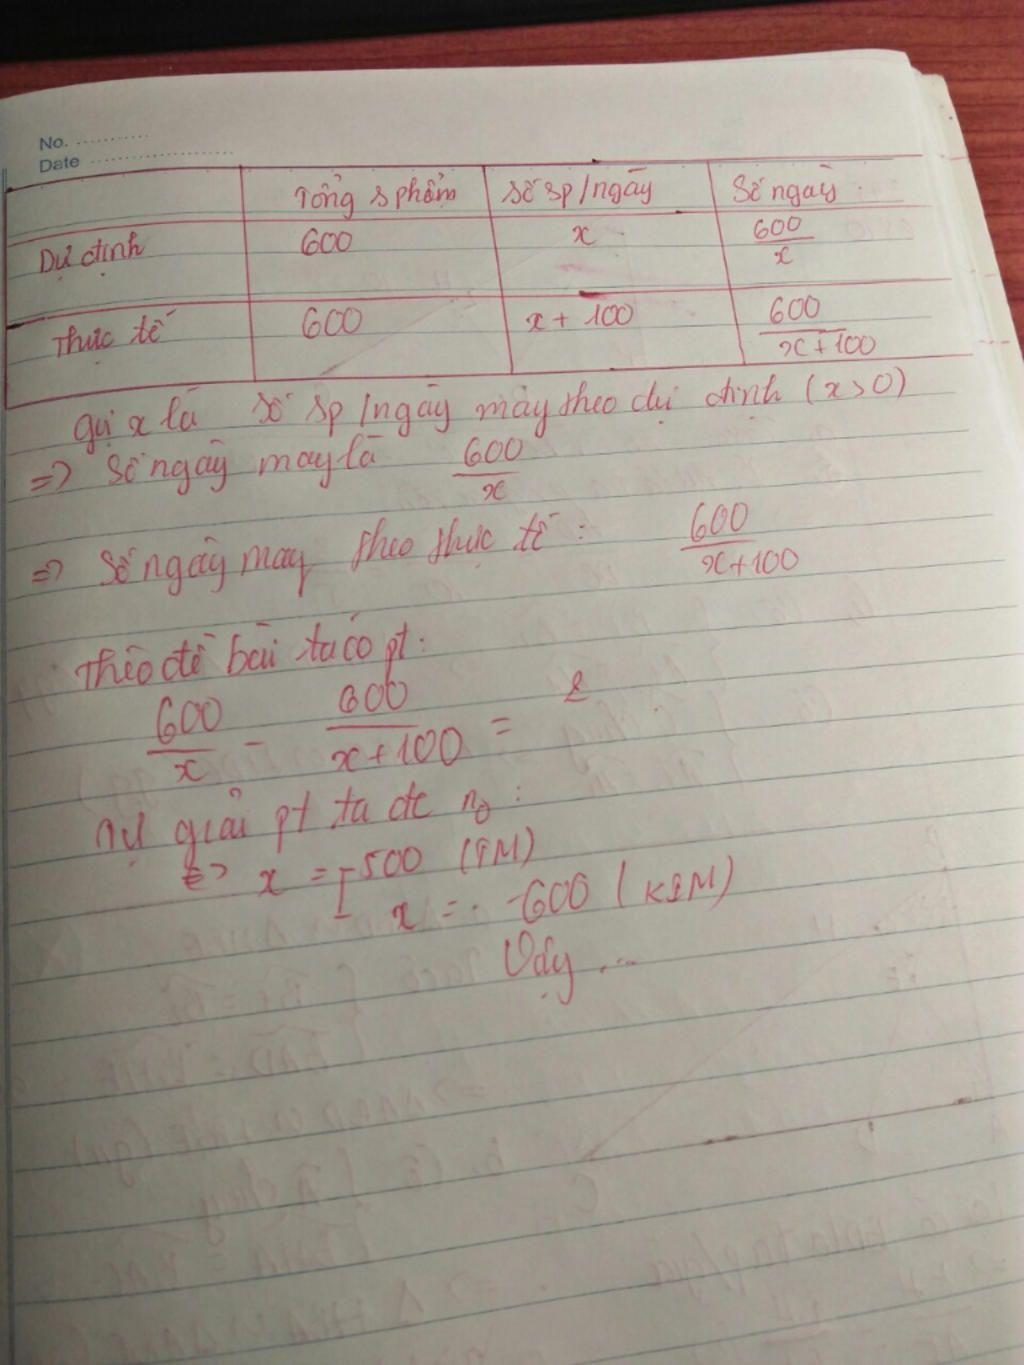 No. ..........
Date ....................
Tổng s phẩm Số sp/ngày Số ngày
Dự định 600 x 600/x
Thực tế 600 x + 100 600/x+100
gọi x là số sp/ngày mày theo dự định (x>0)
=> Số ngày may là 600/x
=> Số ngày may theo thực tế : 600/x+100
Theo đề bài ta có pt:
600/x - 600/x+100 =
Tự giải pt ta đc n0 :
<=> x = 500 (TM)
x = -600 (KTM)
Vậy ...